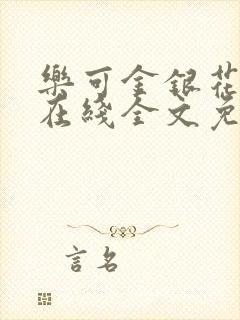 樂可金銀花
在綫全文免
言名